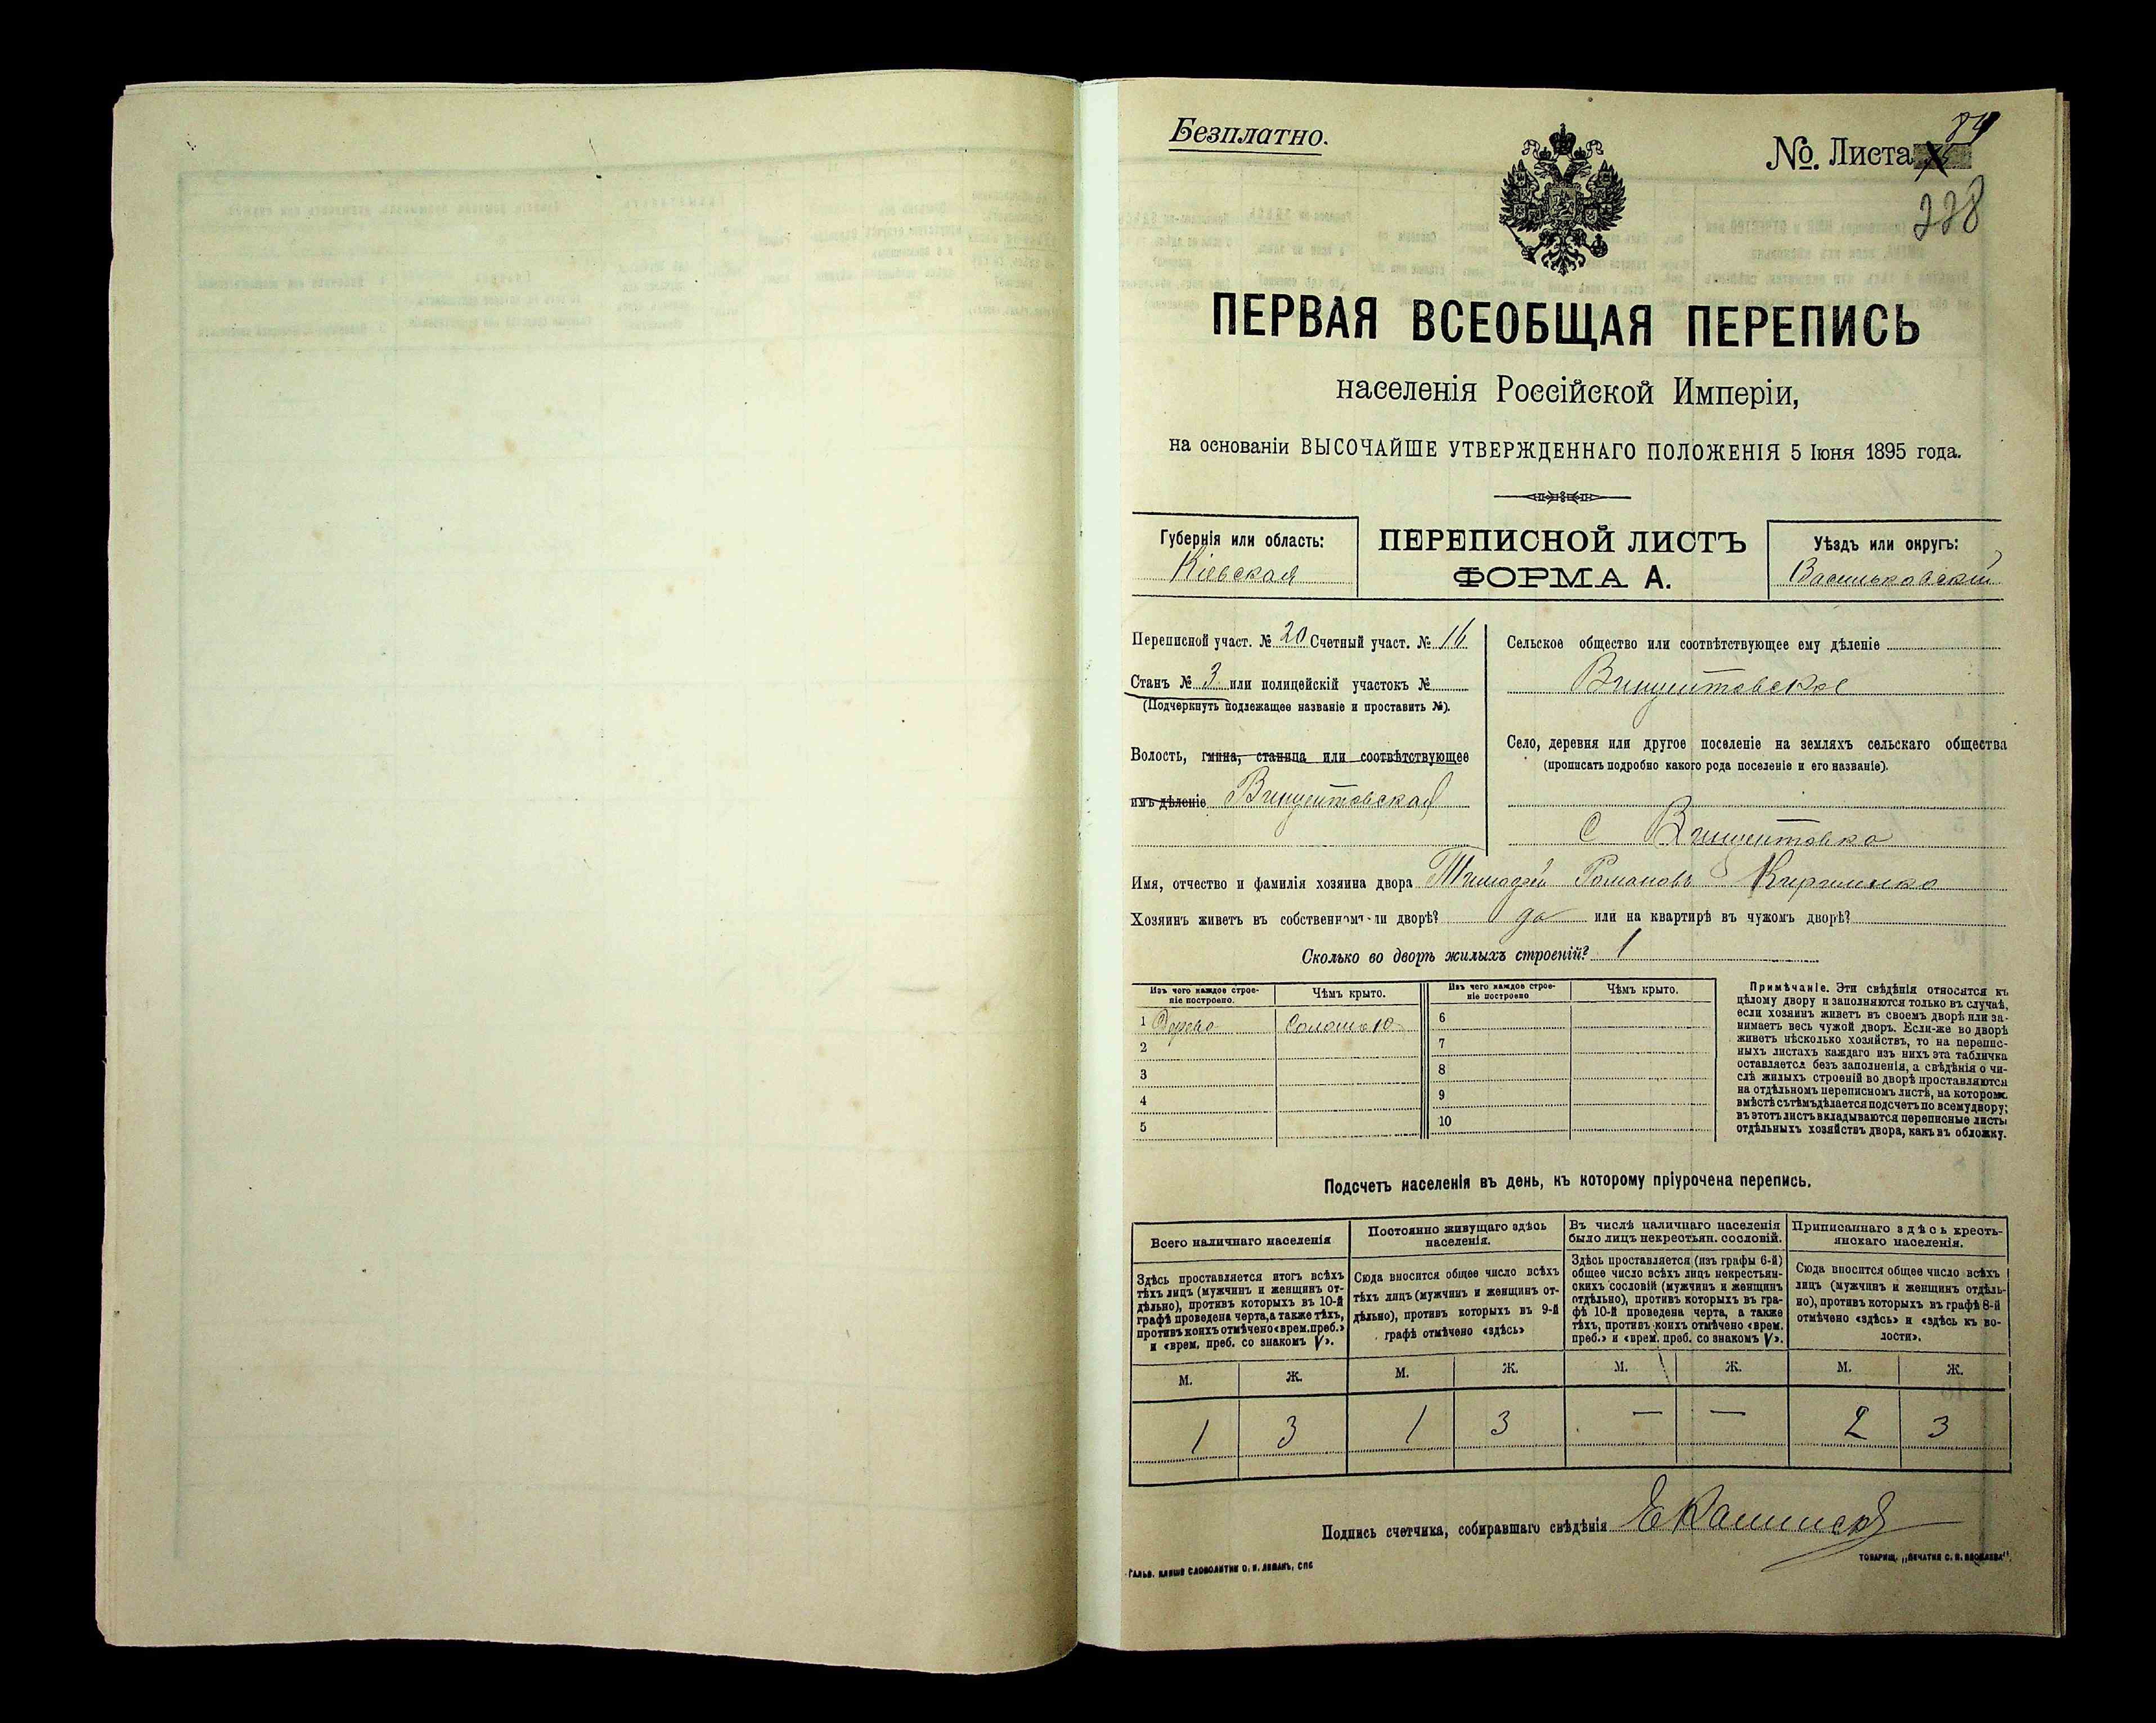 Безплатно.
№. Листа 84
228
ПЕРВАЯ ВСЕОБЩАЯ ПЕРЕПИСЬ
населенія Россійской Имперіи,
на основаніи ВЫСОЧАЙШЕ УТВЕРЖДЕННАГО ПОЛОЖЕНІЯ 5 Іюня 1895 года.
Губернія или область:
Кіевская
ПЕРЕПИСНОЙ ЛИСТЪ
ФОРМА А.
Уѣздъ или округъ:
Васильковскій
Переписной участ. № 20 Счетный участ. № 16
Станъ № 3 или полицейскій участокъ №
(Подчеркнуть подлежащее названіе и проставить №).
Волость, гмина, станица или соотвѣтствующее
имъ дѣленіе Винцентовская
Сельское общество или соотвѣтствующее ему дѣленіе
Винцентовское
Село, деревня или другое поселеніе на земляхъ сельскаго общества
(прописать подробно какого рода поселеніе и его названіе).
С Винцентовка
Имя, отчество и фамилія хозяина двора Тимофей Романовъ
Хозяинъ живетъ въ собственномъ-ли дворѣ? да или на квартирѣ въ чужомъ дворѣ?
Сколько во дворѣ жилыхъ строеній? 1
Изъ чего каждое строе-
ніе построено.
Чѣмъ крыто.
Изъ чего каждое строе-
ніе построено
Чѣмъ крыто.
1 Дерева Соломою 6
2 7
3 8
4 9
5 10
Примѣчаніе. Эти свѣдѣнія относятся къ
цѣлому двору и заполняются только въ случаѣ,
если хозяинъ живетъ въ своемъ дворѣ или за-
нимаетъ весь чужой дворъ. Если-же во дворѣ
живетъ нѣсколько хозяйствъ, то на перепис-
ныхъ листахъ каждаго изъ нихъ эта табличка
оставляется безъ заполненія, а свѣдѣнія о чи-
слѣ жилыхъ строеній во дворѣ проставляются
на отдѣльномъ переписномъ листѣ, на которомъ
вмѣстѣ съ тѣмъ дѣлается подсчетъ по всему двору;
въ этотъ листъ вкладываются переписные листы
отдѣльныхъ хозяйствъ двора, какъ въ обложку.
Подсчетъ населенія въ день, къ которому пріурочена перепись.
Всего наличнаго населенія
Здѣсь проставляется итогъ всѣхъ
тѣхъ лицъ (мужчинъ и женщинъ от-
дѣльно), противъ которыхъ въ 10-й
графѣ проведена черта, а также тѣхъ,
противъ коихъ отмѣчено «врем. преб.»
и «врем. преб. со знакомъ V».
Постоянно живущаго здѣсь
населенія.
Сюда вносится общее число всѣхъ
тѣхъ лицъ (мужчинъ и женщинъ от-
дѣльно), противъ которыхъ въ 9-й
графѣ отмѣчено «здѣсь»
Въ числѣ наличнаго населенія
было лицъ некрестьян. сословій.
Здѣсь проставляется (изъ графы 6-й)
общее число всѣхъ лицъ некрестьян-
скихъ сословій (мужчинъ и женщинъ
отдѣльно), противъ которыхъ въ гра-
фѣ 10-й проведена черта, а также
тѣхъ, противъ коихъ отмѣчено «врем.
преб.» и «врем. преб. со знакомъ V».
Приписаннаго здѣсь кресть-
янскаго населенія.
Сюда вносится общее число всѣхъ
лицъ (мужчинъ и женщинъ отдѣль-
но), противъ которыхъ въ графѣ 8-й
отмѣчено «здѣсь» и «здѣсь къ во-
лости».
М. Ж. М. Ж. М. Ж. М. Ж.
1 3 1 3 — — 2 3
Подпись счетчика, собиравшаго свѣдѣнія
Гальв. клише словолитни О. И. Леманъ, СПБ